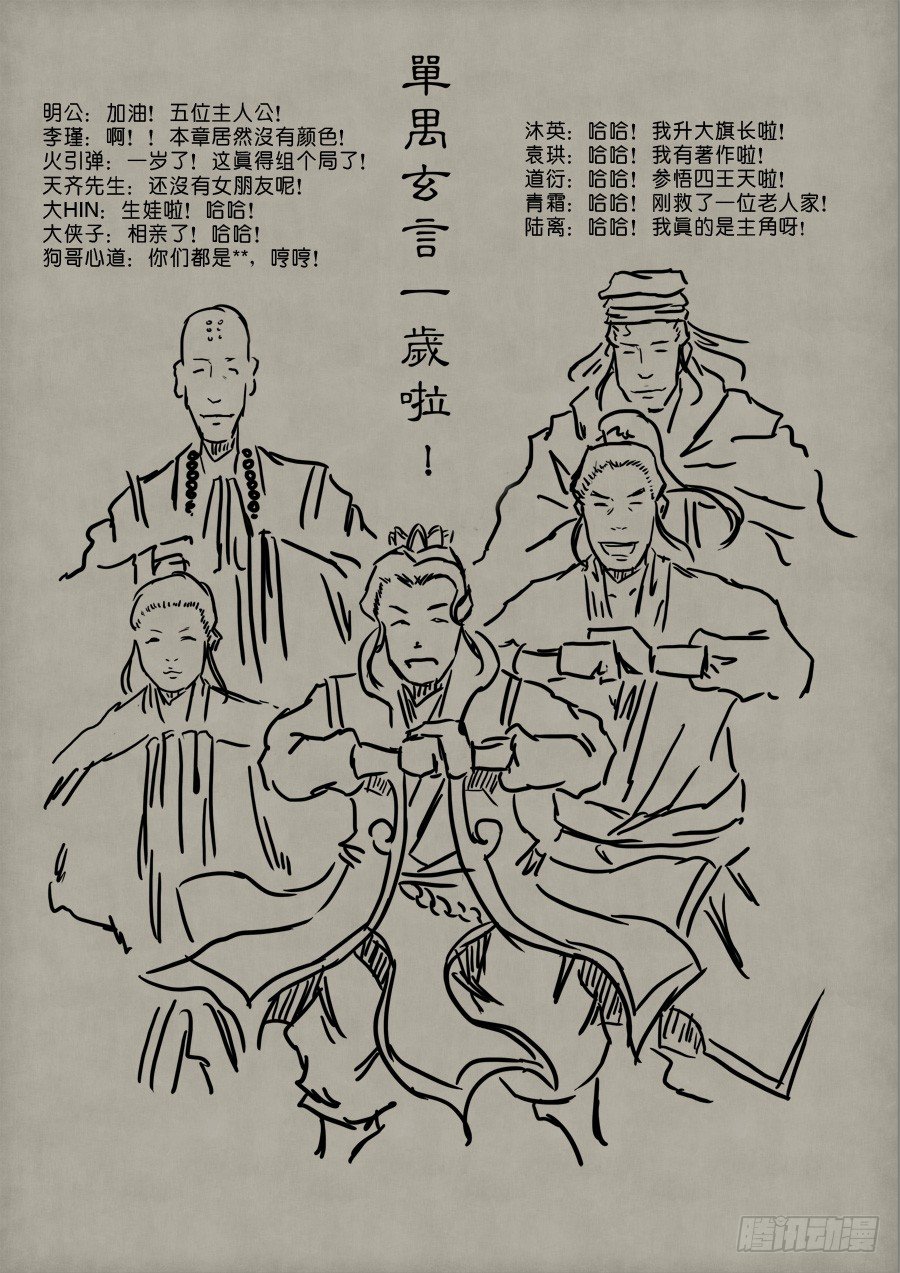 單禺玄言一歲啦！
明公：加油！五位主人公！
李瑾：啊！！本章居然沒有颜色！
火引弹：一岁了！这真得组个局了！
天齐先生：还沒有女朋友呢！
大HIN：生娃啦！哈哈！
大侠子：相亲了！哈哈！
狗哥心道：你们都是**，哼哼！
沐英：哈哈！我升大旗长啦！
袁珙：哈哈！我有著作啦！
道衍：哈哈！参悟四王天啦！
青霜：哈哈！刚救了一位老人家！
陆离：哈哈！我真的是主角呀！
腾讯动漫